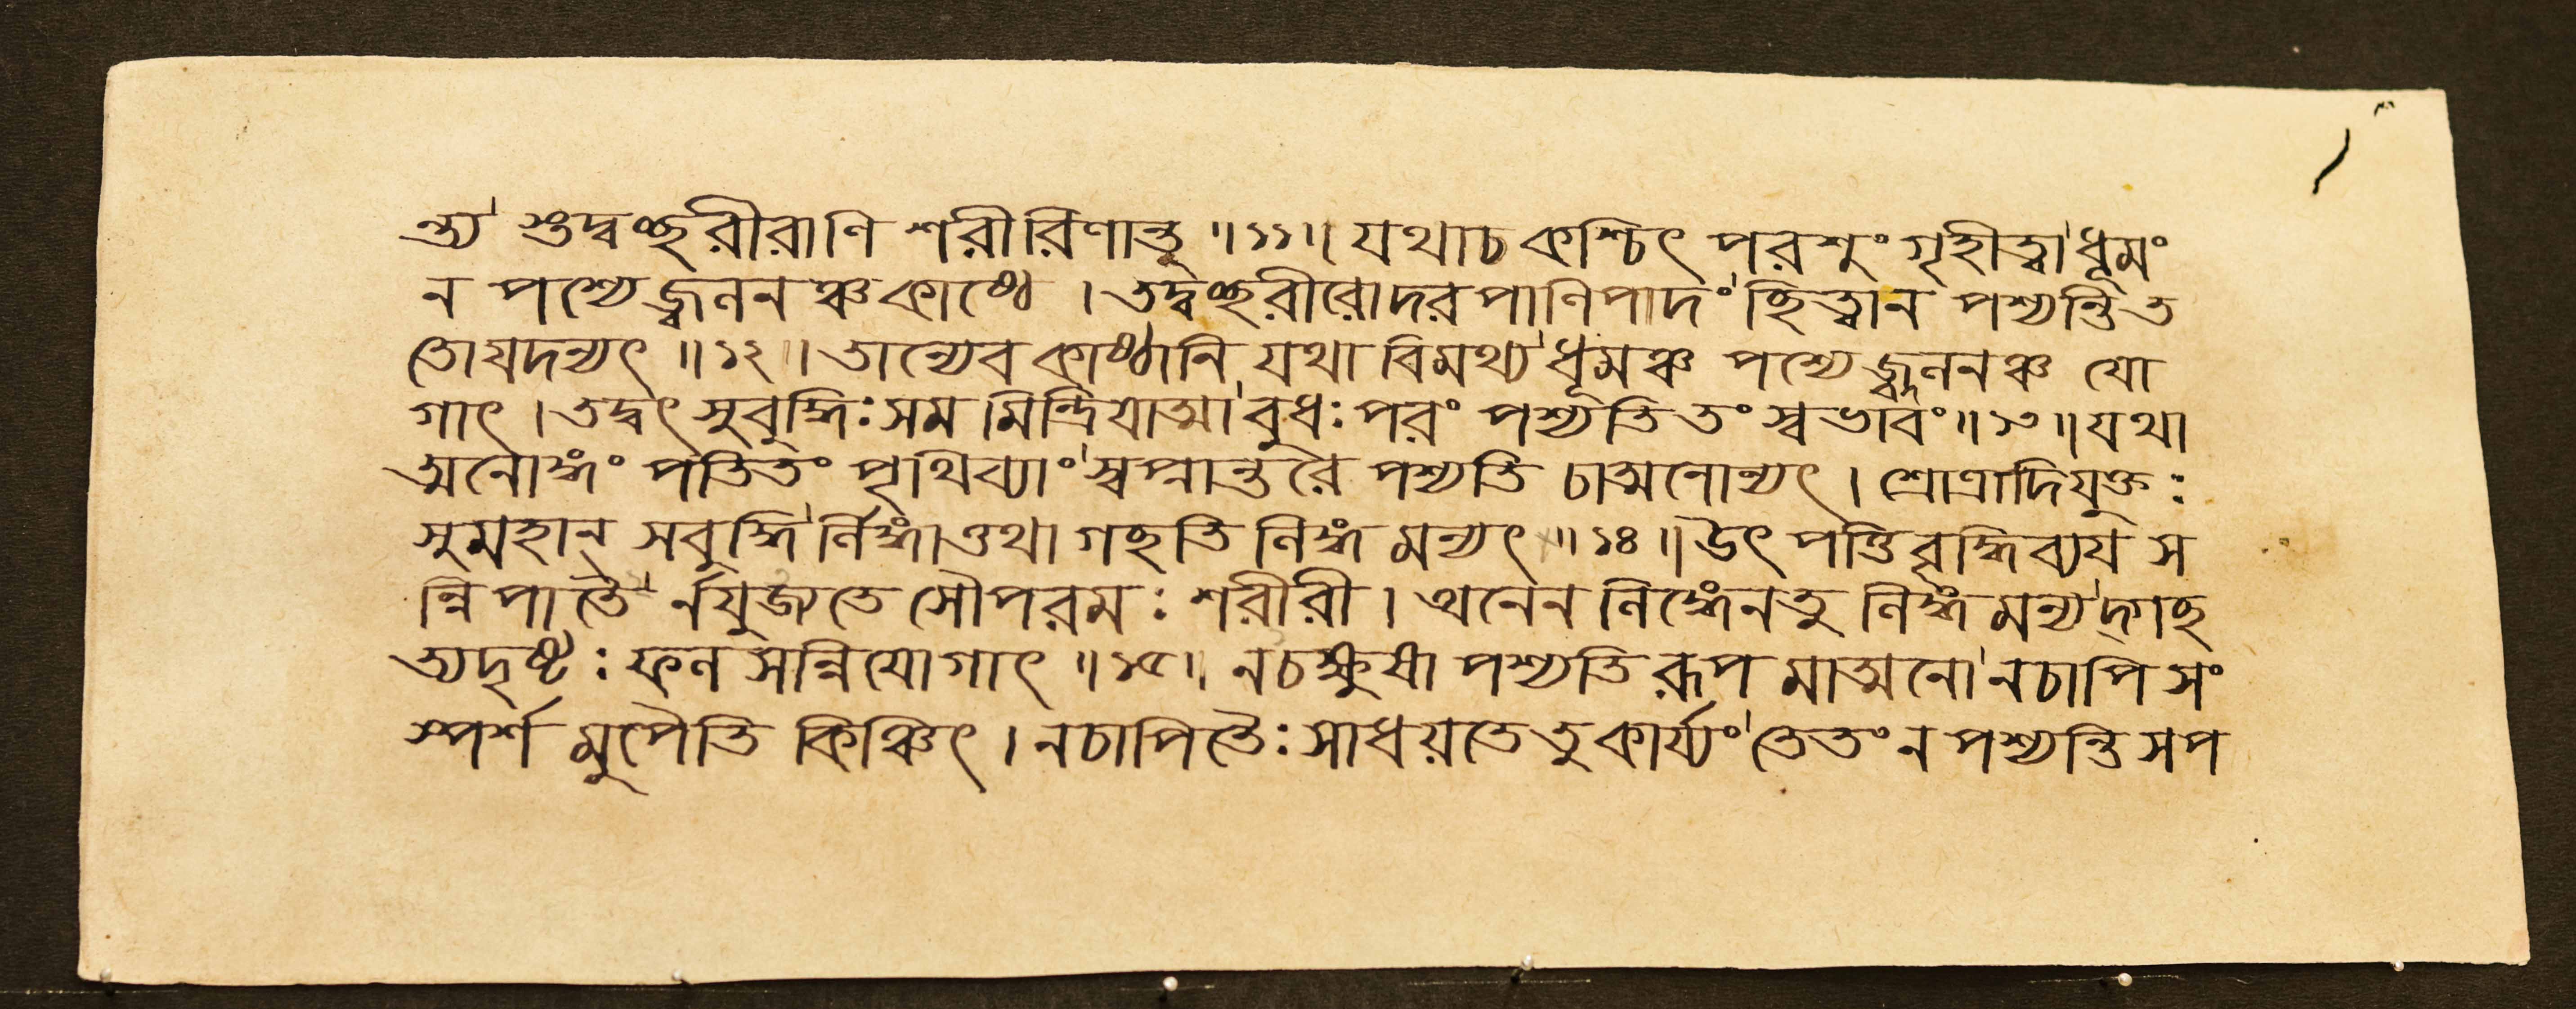 ন্ত্য' শুদ্বচ্ছরীরাণি শরীরিণান্তু ॥১১॥ যথাচ কশ্চিৎ পরশুং গৃহীত্বা'ধূমং
ন পশ্যেজ্জ্বলনঞ্চকাষ্ঠে । তদ্বচ্ছরীরোদরপাণিপাদং'ছিত্ত্বান পশ্যন্তিত
তোযদন্যৎ ॥১২॥ তান্যেব কাষ্ঠানি যথা বিমথ্য'ধূমঞ্চ পশ্যেজ্জ্বলনঞ্চ যো
গাৎ । তদ্বৎ সুবুদ্ধিঃ সম মিন্দ্রিযাত্মা'বুধঃ পরং পশ্যতি তং স্বভাবং ॥১৩॥ যথা
ত্মনোঙ্গং পতিতং পৃথিব্যাং'স্বপ্নান্তরে পশ্যতি চাত্মনোন্যৎ । শ্রোত্রাদিযুক্তঃ
সুমহান্ সবুদ্ধি'র্লিঙ্গাত্তথা গচ্ছতি লিঙ্গ মন্যৎ ॥১৪॥ উৎ পত্তিবৃদ্ধিব্যয স
ন্নিপাতৈ'র্নযুজ্যতে সৌপরমঃ শরীরী । অনেন লিঙ্গেনতু লিঙ্গ মন্য'দ্গচ্ছ
ত্যদৃষ্টঃ ফল সন্নিযোগাৎ ॥১৫॥ নচক্ষুষা পশ্যতি রূপ মাত্মনো'নচাপি সং
স্পর্শ মুপৈতি কিঞ্চিৎ । নচাপিতৈঃ সাধয়তেতু কার্য্যং'তেতং ন পশ্যন্তি সপ